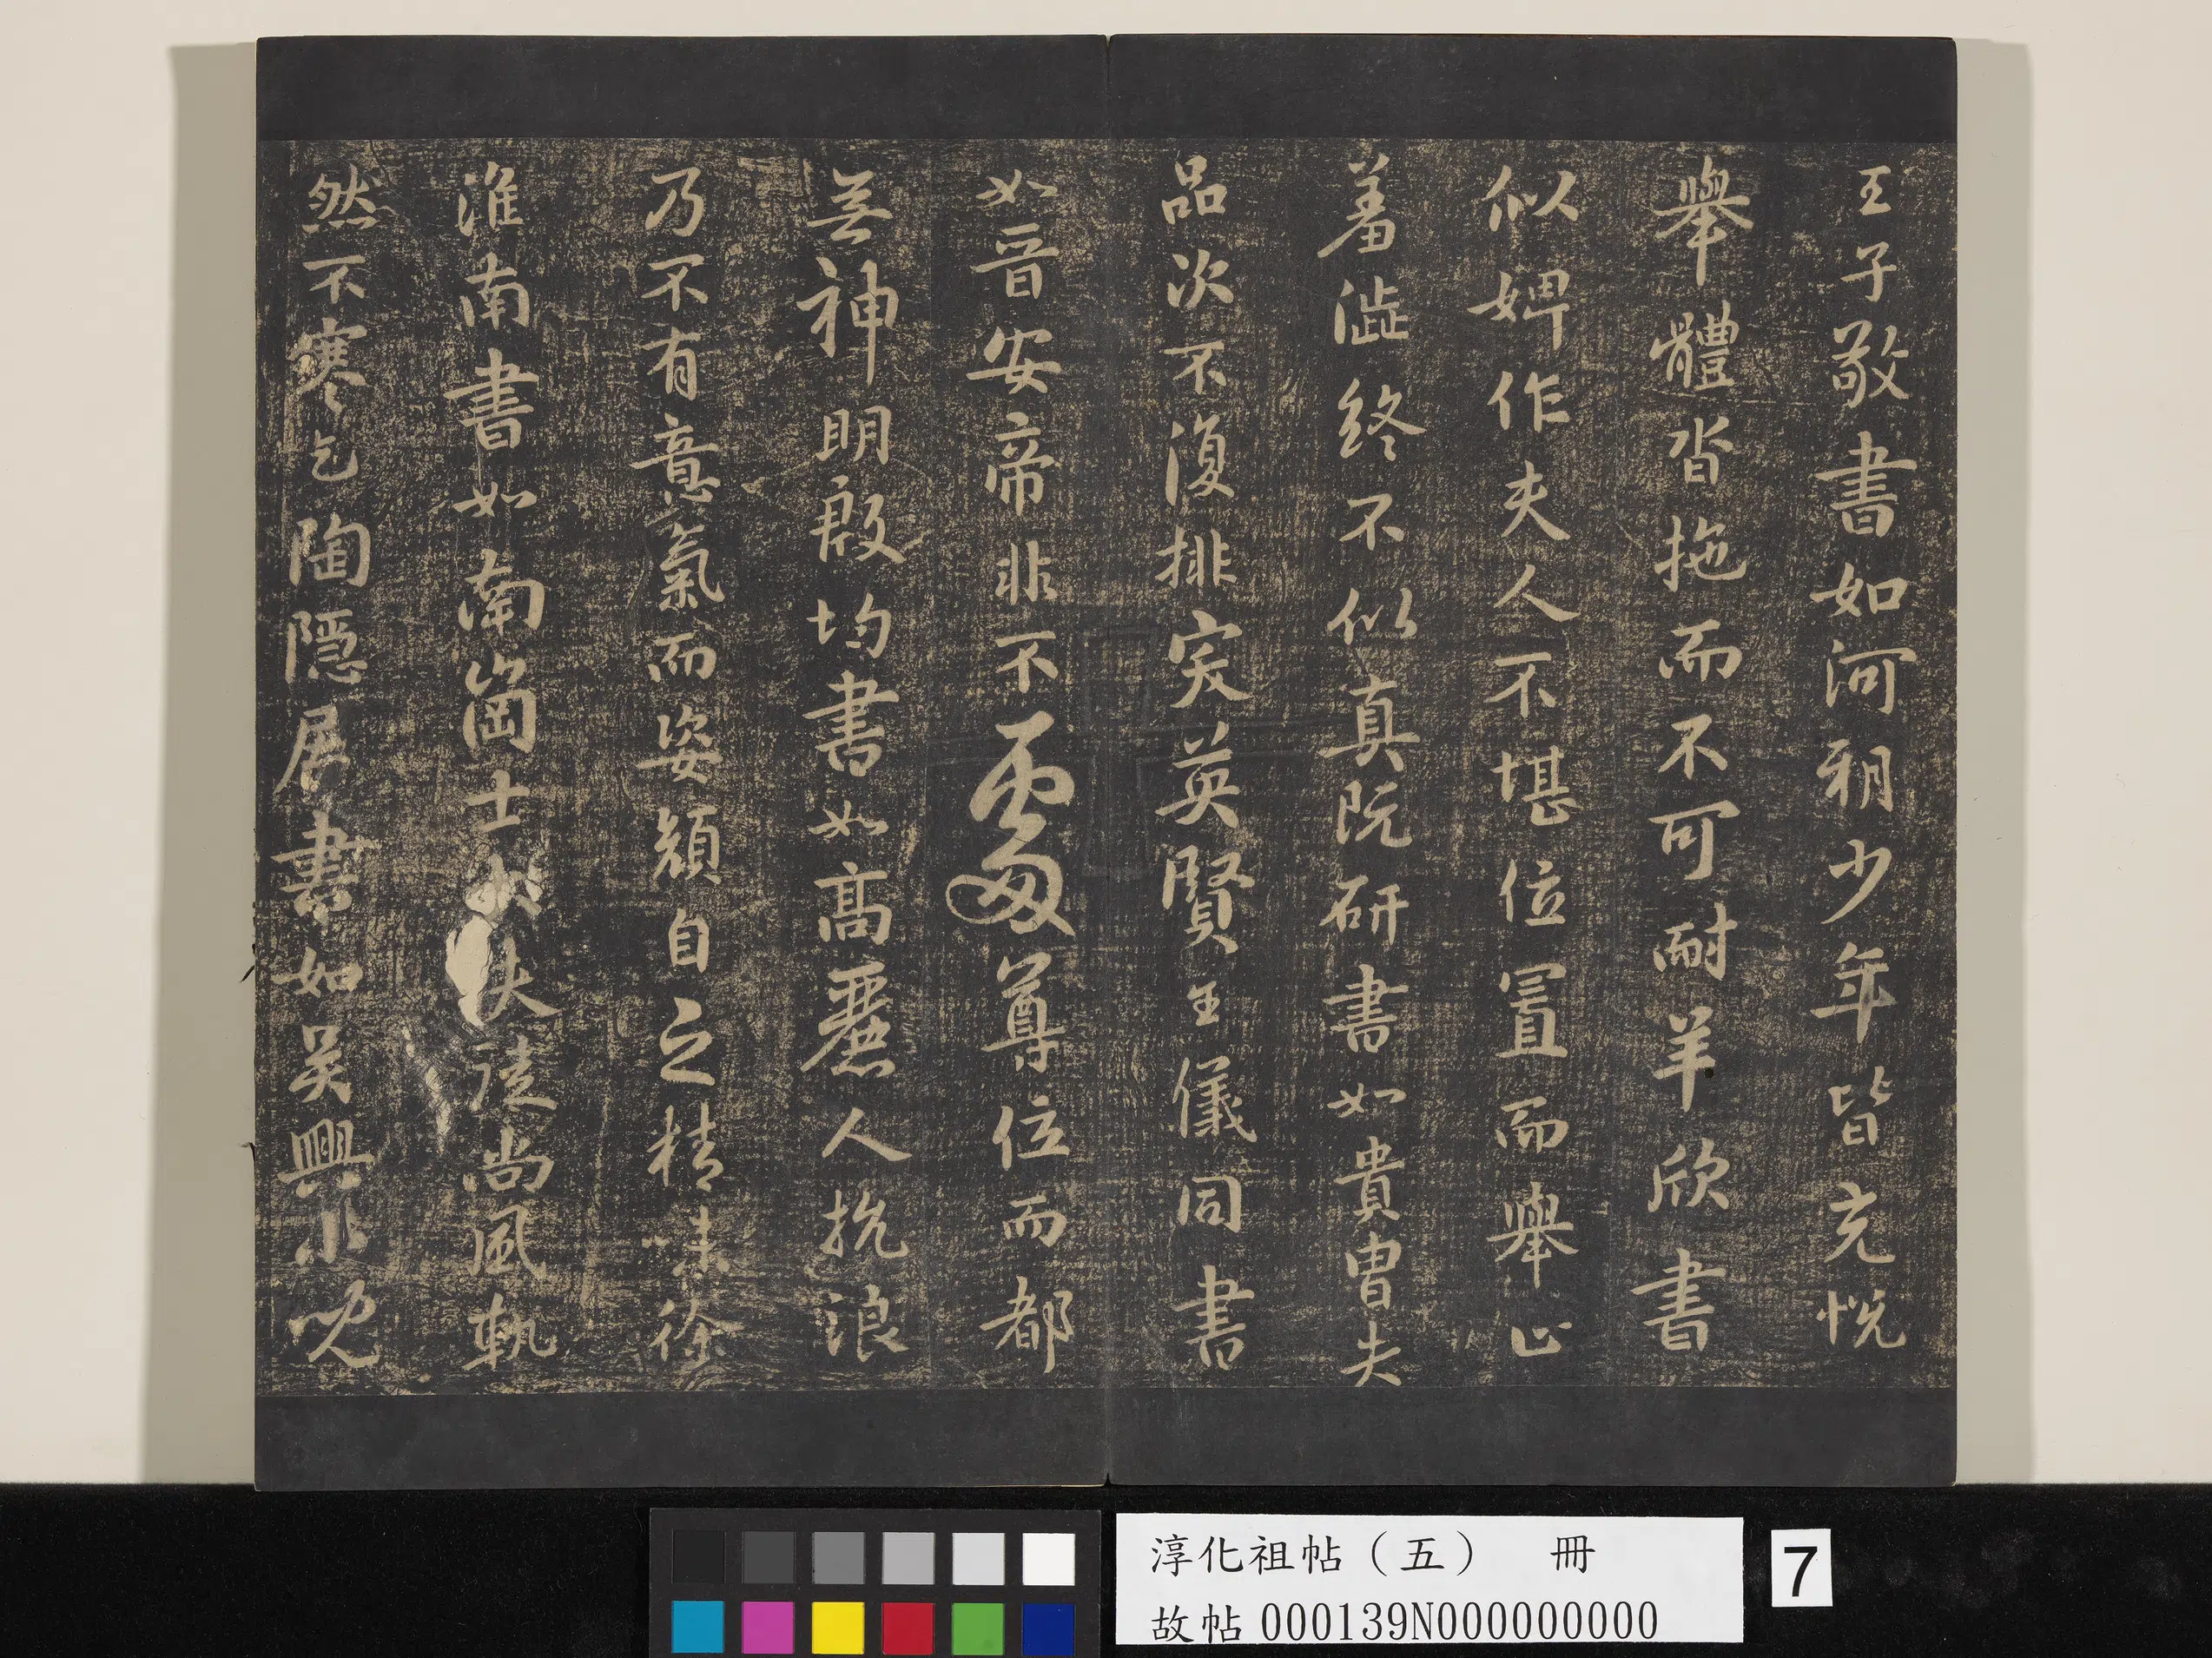 王子敬書如河朔少年皆充悅
舉體沓拖而不可耐羊欣書
似婢作夫人不堪位置而舉止
羞澁終不似真阮研書如貴胄失
品次不復排突英賢王儀同書
如晉安帝非不處尊位而都
無神明殷均書如高麗人抗浪
乃不有意氣而姿顏自乏精味徐
淮南書如南崗士大夫徒尚風軌
然不寒乞陶隱居書如吳興小兒
淳化祖帖（五） 冊
故帖 000139N000000000
7